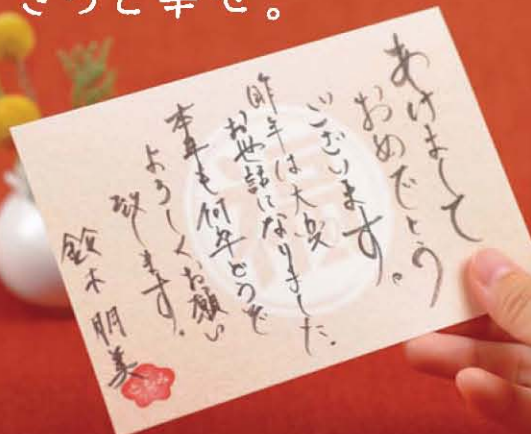 きっと幸せ。
あけまして
おめでとう
ございます。
昨年は大変
お世話になりました。
本年も何卒どうぞ
よろしくお願い
致します。
鈴木朋美